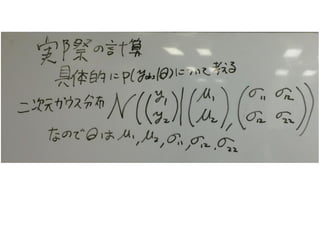 実際の計算
具体的にP(y_{obs}|θ)について考える
二次元ガウス分布 N((y₁ y₂)|(μ₁ μ₂),(σ₁₁ σ₁₂ σ₁₂ σ₂₂))
なのでθは μ₁, μ₂, σ₁₁, σ₁₂, σ₂₂